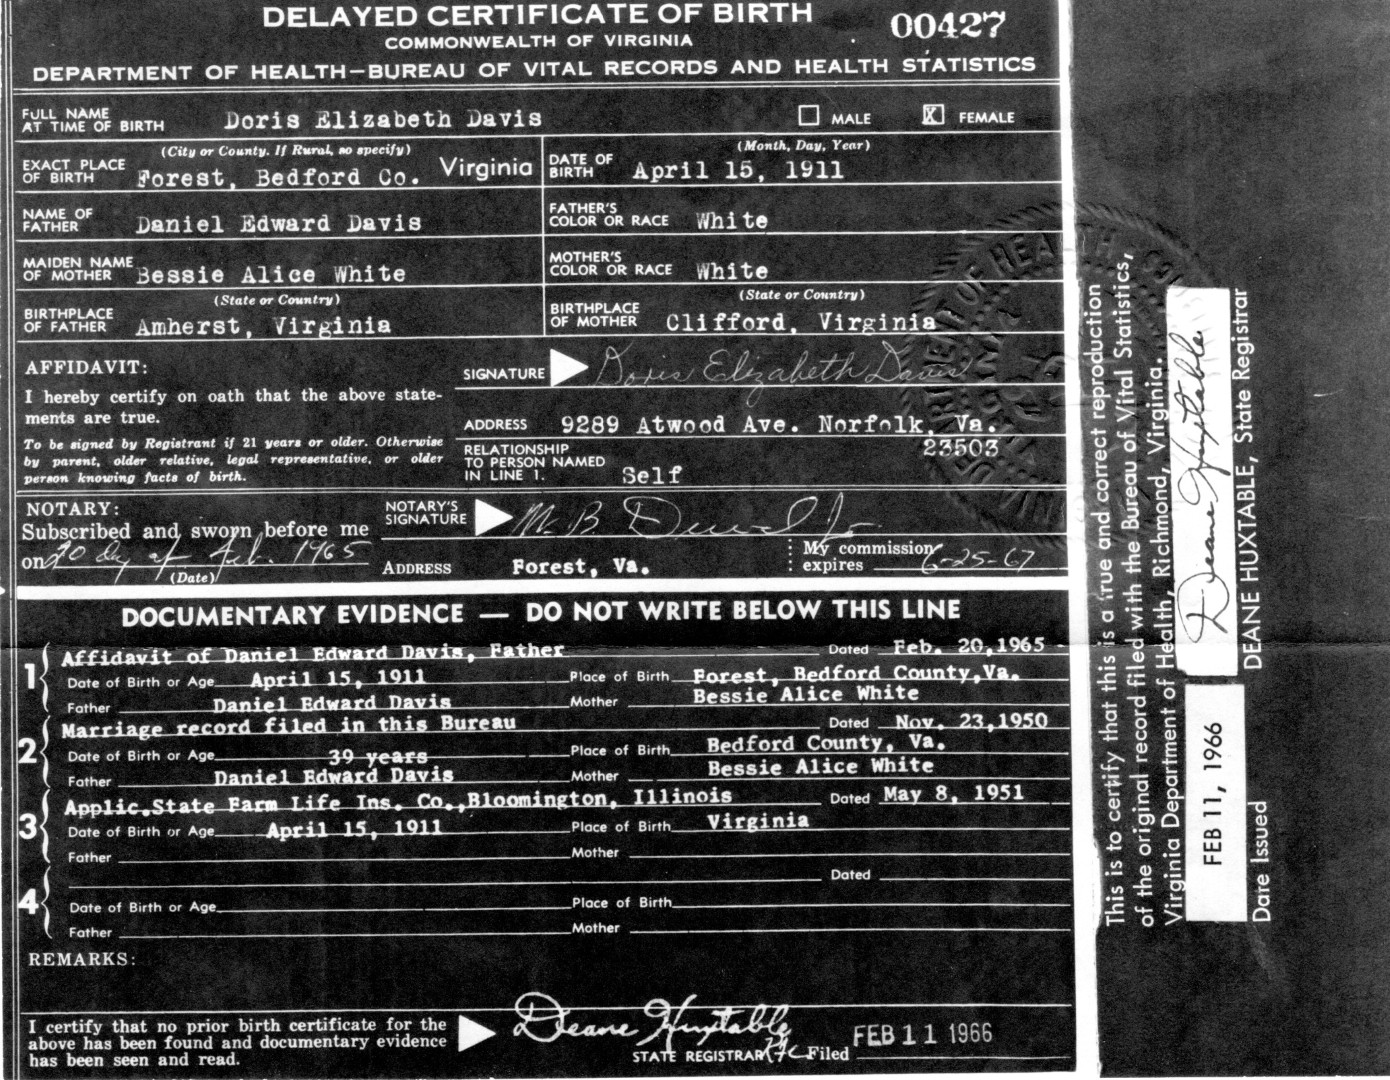 DELAYED CERTIFICATE OF BIRTH
00427
COMMONWEALTH OF VIRGINIA
DEPARTMENT OF HEALTH—BUREAU OF VITAL RECORDS AND HEALTH STATISTICS
FULL NAME AT TIME OF BIRTH Doris Elizabeth Davis MALE X FEMALE
(City or County. If Rural, so specify)
EXACT PLACE OF BIRTH Forest, Bedford Co. Virginia
(Month, Day, Year)
DATE OF BIRTH April 15, 1911
NAME OF FATHER Daniel Edward Davis
FATHER'S COLOR OR RACE White
MAIDEN NAME OF MOTHER Bessie Alice White
MOTHER'S COLOR OR RACE White
(State or Country)
BIRTHPLACE OF FATHER Amherst, Virginia
(State or Country)
BIRTHPLACE OF MOTHER Clifford, Virginia
AFFIDAVIT:
I hereby certify on oath that the above state-
ments are true.
To be signed by Registrant if 21 years or older. Otherwise
by parent, older relative, legal representative, or older
person knowing facts of birth.
SIGNATURE Doris Elizabeth Davis
ADDRESS 9289 Atwood Ave. Norfolk, Va.
23503
RELATIONSHIP
TO PERSON NAMED
IN LINE 1. Self
NOTARY:
Subscribed and sworn before me
on 20 day of Feb. 1965
(Date)
NOTARY'S SIGNATURE M. B. Jr.
ADDRESS Forest, Va.
My commission expires 6-25-67
DOCUMENTARY EVIDENCE — DO NOT WRITE BELOW THIS LINE
1 Affidavit of Daniel Edward Davis, Father Dated Feb. 20,1965
Date of Birth or Age April 15, 1911 Place of Birth Forest, Bedford County,Va.
Father Daniel Edward Davis Mother Bessie Alice White
2 Marriage record filed in this Bureau Dated Nov. 23,1950
Date of Birth or Age 39 years Place of Birth Bedford County, Va.
Father Daniel Edward Davis Mother Bessie Alice White
3 Applic.State Farm Life Ins. Co.,Bloomington, Illinois Dated May 8, 1951
Date of Birth or Age April 15, 1911 Place of Birth Virginia
Father Mother
4 Dated
Date of Birth or Age Place of Birth
Father Mother
REMARKS:
I certify that no prior birth certificate for the
above has been found and documentary evidence
has been seen and read.
Deane Huxtable
STATE REGISTRAR Filed FEB 11 1966
This is to certify that this is a true and correct reproduction
of the original record filed with the Bureau of Vital Statistics,
Virginia Department of Health, Richmond, Virginia.
FEB 11, 1966 Deane Huxtable
Date Issued DEANE HUXTABLE, State Registrar